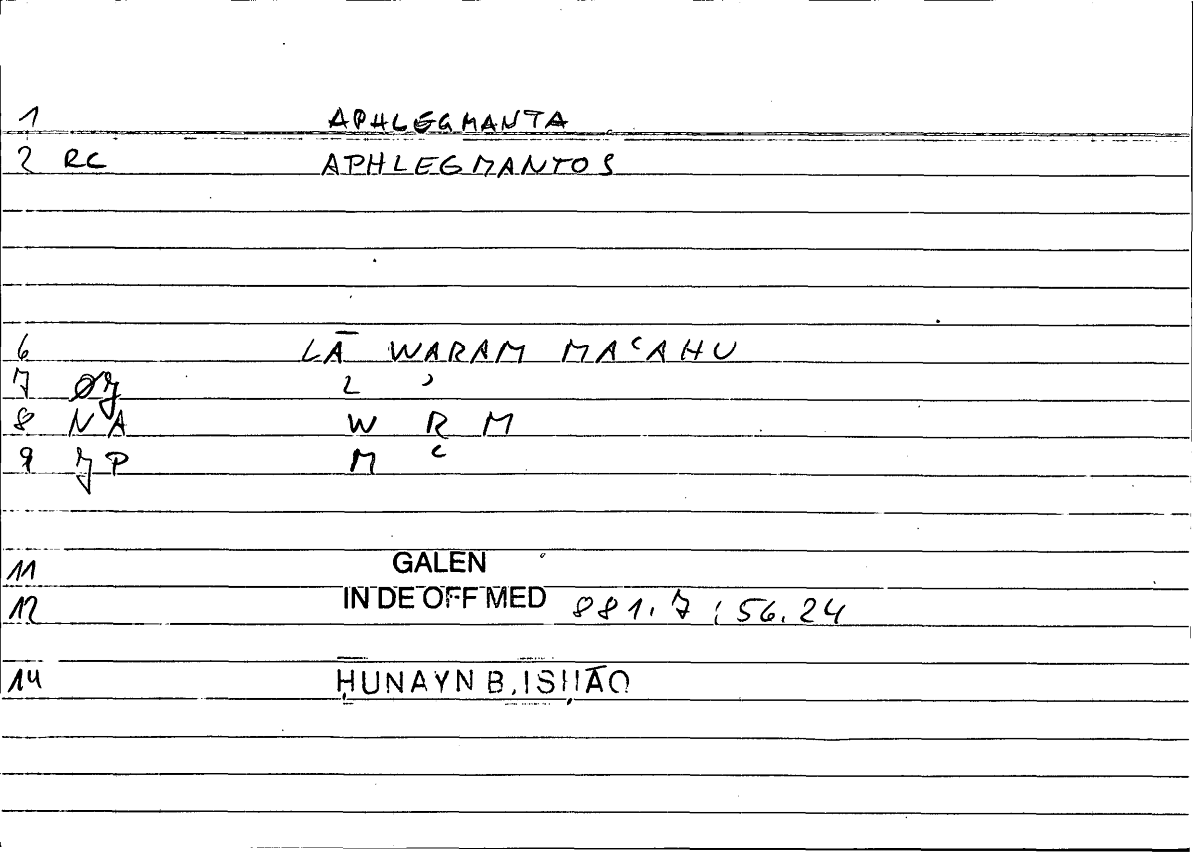 1 APHLEGMANTA
2 RC APHLEGMANTOS
6 LĀ WARAM MAʿAHU
7 L ʾ
8 NA W R M
9 JP M ʿ
11 GALEN
12 IN DE OFF MED 881.7 ; 56.24
14 ḤUNAYN B. ISḤĀQ